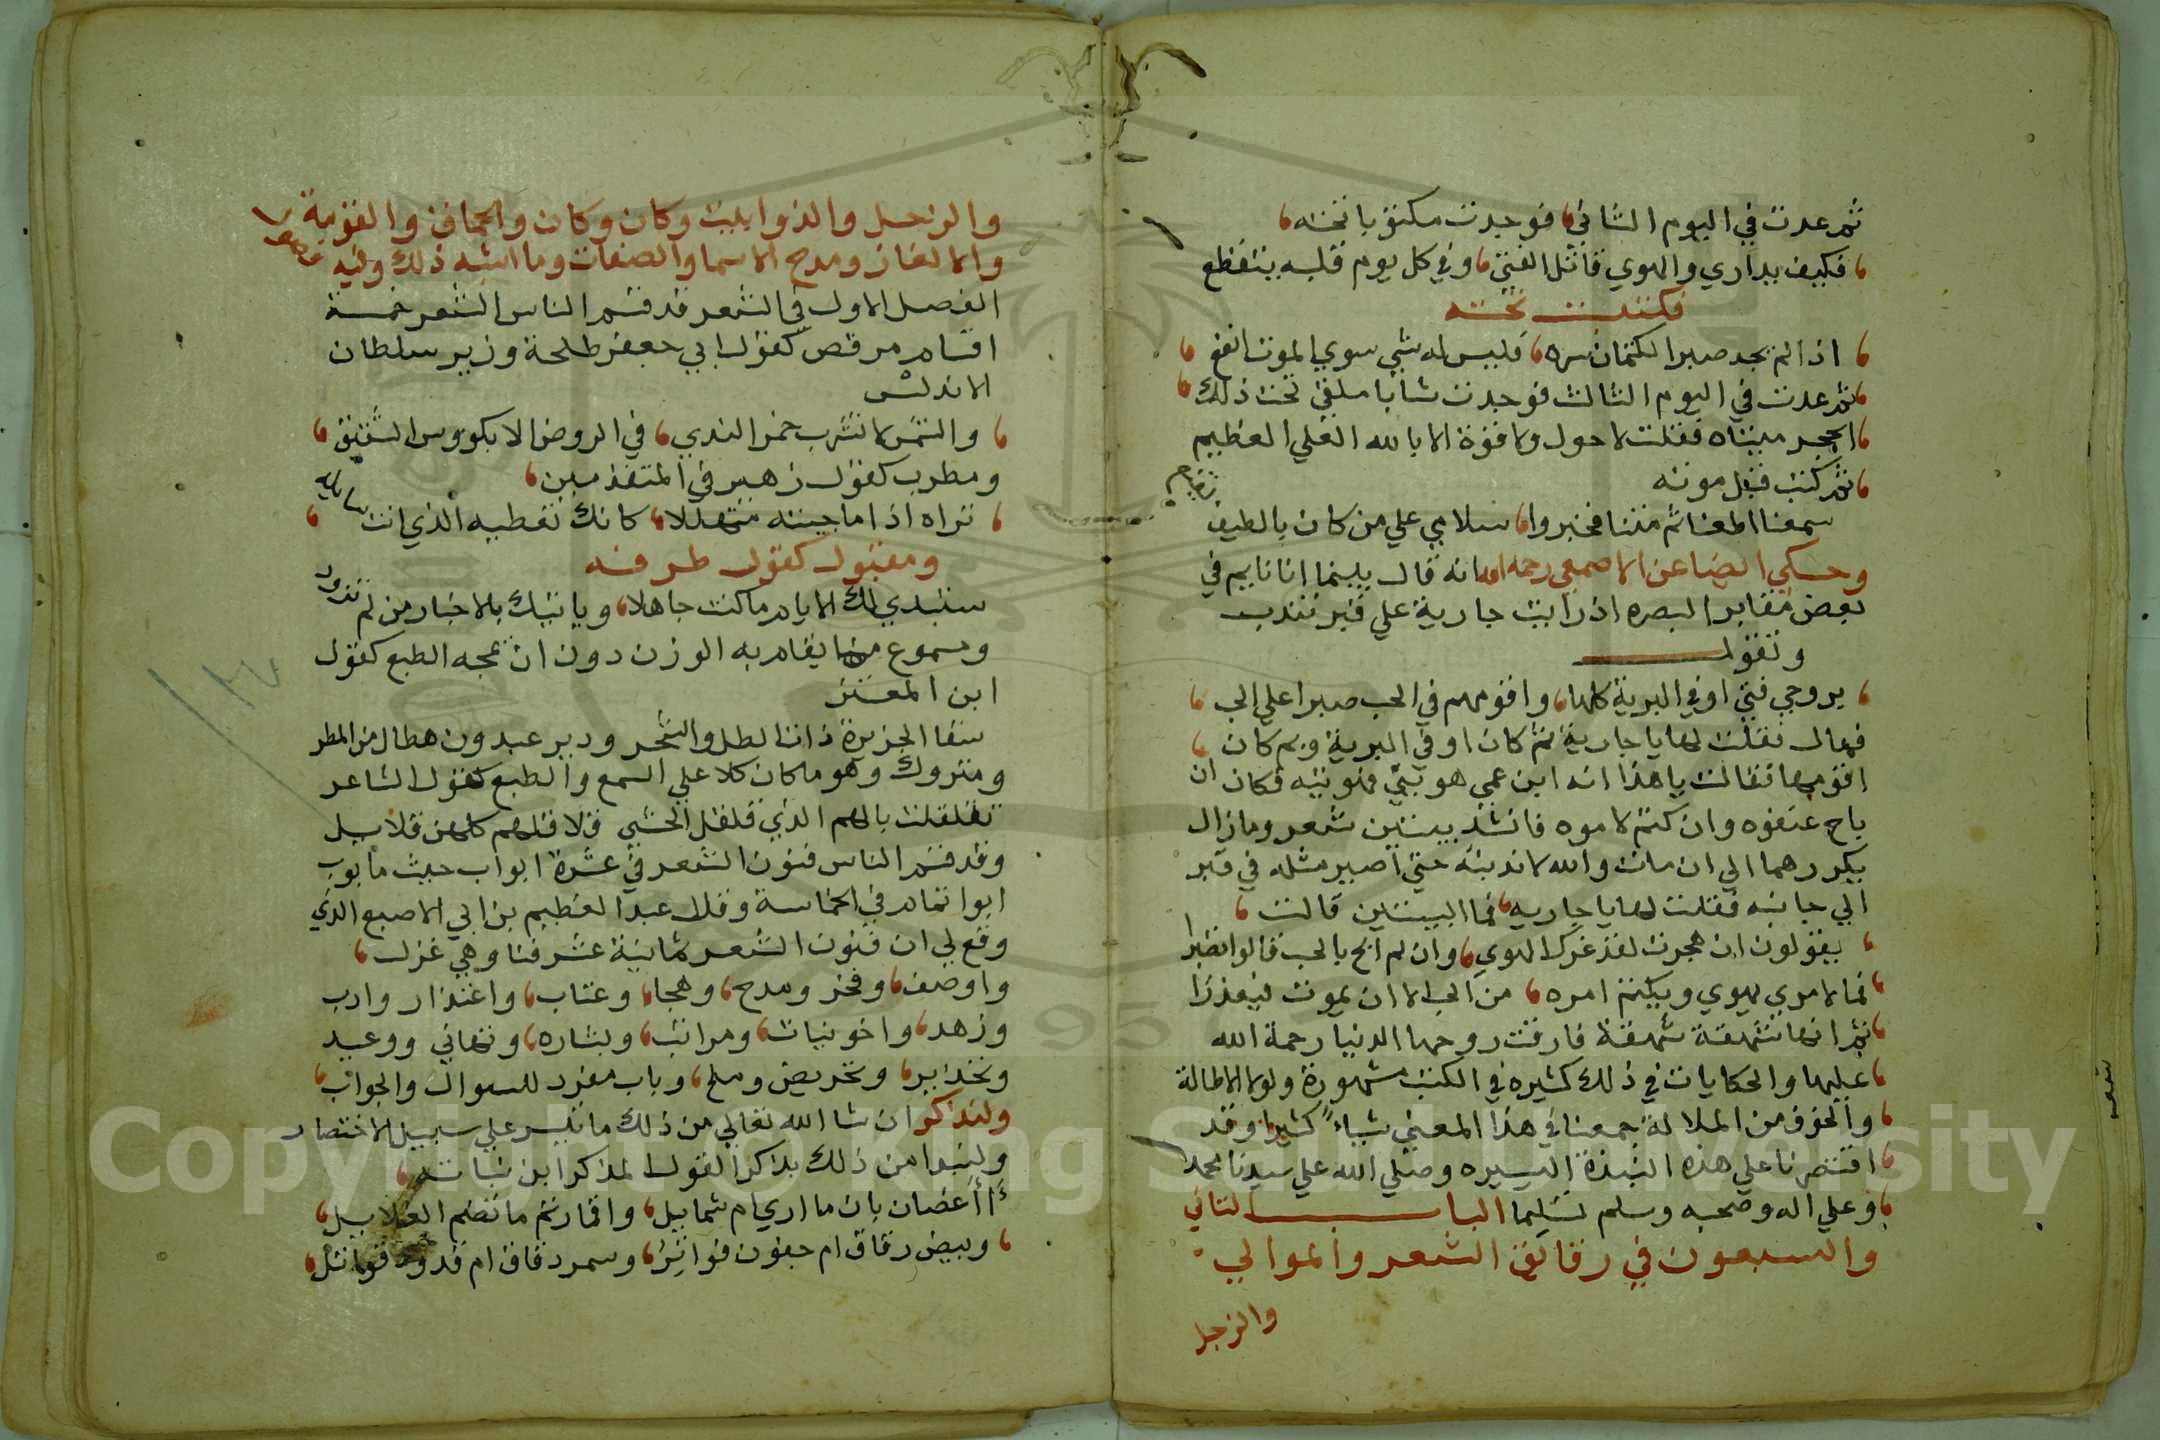 ثم عدت في اليوم الثاني فوجدت مكتوبا تحته
فكيف يداري والهوي قاتل الفتي وفي كل يوم قلبه يتقطع
فكتبت تحته
اذا لم يجد صبرا لكتمان سره فليس له شي سوي الموت انفع
ثم عدت في اليوم الثالث فوجدت شابا ملقي تحت ذلك
الحجر ميتاه فقلت لا حول ولا قوة الا بالله العلي العظيم
ثم كتب قبل موته
سمعنا اطعنا ثم متنا فخبروا سلامي علي من كان بالطيف
وحكي ايضا عن الاصمعي رحمه الله انه قال بينما انا نايم في
بعض مقابر البصره اذ رايت جارية علي قبر تندب
وتقول
بروحي فتي اوفي البرية كلها واقومهم في الحب صبرا علي الحب
فقال فقلت لها يا جارية بم كان اوفي البرية وبم كان
اقومها فقالت يا هذا انه ابن عمي هويني فهويته فكان ان
باح عنفوه وان كتم لاموه فانشد بيتين شعر وما زال
يكررهما الي ان مات والله لاندبنه حتي اصير مثله في قبر
الي جانبه فقلت لها يا جاريه فما البيتين قالت
يقولون ان هجرت لقد غرك الهوي وان لم ابح بالحب قالوا تصبرا
فما لامري يهوي ويكتم امره من الحب الا ان يموت فيعذرا
ثم انها شهقة شهقة فارقت روحها الدنيا رحمة الله
عليها والحكايات في ذلك كثيره في الكتب مشهورة ولولا الاطالة
والخوف من الملالة جمعنا في هذا المعني شياء كثيرا وقد
اقتصرنا علي هذه النبذة اليسيره وصلي الله علي سيدنا محمد
وعلي اله وصحبه وسلم تسليما الباب الثاني
والسبعون في رقائق الشعر والموالي
والزجل
والزجل والذوابيت وكان وكان والحماق والقومة
والالغاز ومدح الاسما والصفات وما اشبه ذلك وفيه
الفصل الاول في الشعر قد قسم الناس الشعر خمسة
اقسام مرقص كقول ابي جعفر طلحة وزير سلطان
الاندلس
والشمس لا تشرب خمر الندي في الروض الا بكووس الشقيق
ومطرب كقول زهير في المتقدمين
تراه اذا ما جيته متهللا كانك تعطيه الذي انت سايله
ومقبول كقول طرفه
ستبدي لك الايام ما كنت جاهلا وياتيك بالاخبار من لم تزود
ومسموع مما يقام به الوزن دون ان يمجه الطبع كقول
ابن المعتز
سقا الجزيرة ذات الطل والشجر ودير عبدون هطال من المطر
ومتروك وهو ما كان كلا علي السمع والطبع كقول الشاعر
تقلقلت بالهم الذي قلقل الحشي قلاقلهم كلهن قلاقيل
وقد قسم الناس فنون الشعر في عشرة ابواب حيث ما بوب
ابوا تمام في الحماسة وقال عبد العظيم بن ابي الاصبع الذي
وقع لي ان فنون الشعر ثمانية عشر فنا وهي غزل
واوصف وفخر ومدح وهجا وعتاب واعتذار وادب
وزهد واخونيات ومراتب وبشاره وتهاني ووعيد
وتحذير وتحريض وملح وباب مفرد للسوال والجواب
ولنذكر ان شا الله تعالي من ذلك ما تيسر علي سبيل الاختصار
ولنبدا من ذلك بذكر الغزل لمذكر ابن نباته
أأغصان بان ما اري ام شمايل واقمار تم ما تضم الغلايل
وبيض رقاق ام جفون فواتر وسمر دقاق ام قدود قواتل
Copyright © King Saud University